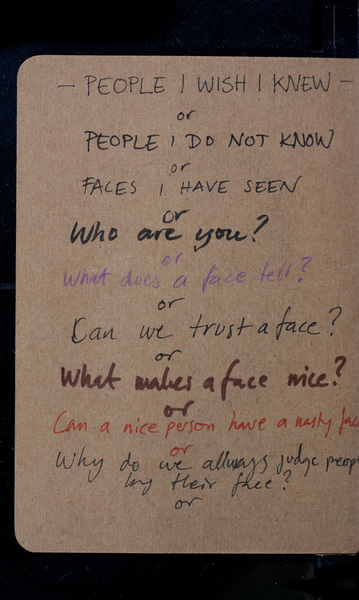 - PEOPLE I WISH I KNEW -
or
PEOPLE I DO NOT KNOW
or
FACES I HAVE SEEN
or
Who are you?
or
What does a face tell?
or
Can we trust a face?
or
What makes a face nice?
or
Can a nice person have a nasty fac
or
Why do we allways judge peop
by their face?
or